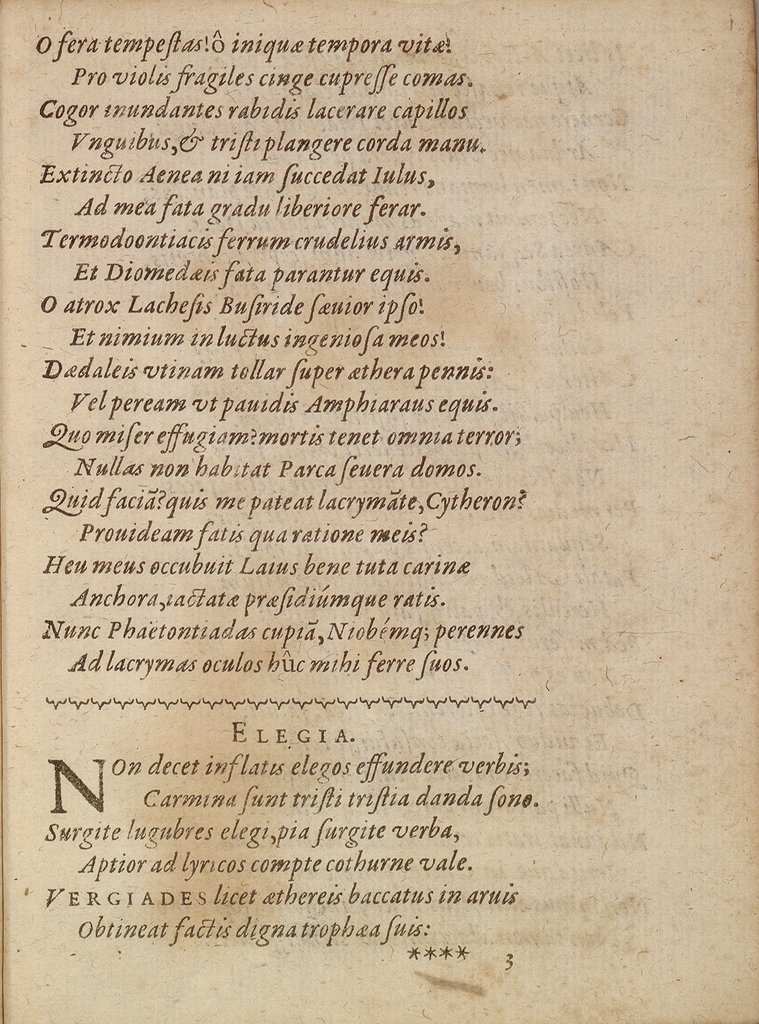 O fera tempeſtas! ô iniquæ tempora vitæ!
Pro violis fragiles cinge cupreſſe comas.
Cogor inundantes rabidis lacerare capillos
Vnguibus, & triſti plangere corda manu.
Extincto Aenea ni iam ſuccedat Iulus,
Ad mea fata gradu liberiore ferar.
Termodoontiacis ferrum crudelius armis,
Et Diomedæis fata parantur equis.
O atrox Lacheſis Buſiride ſæuior ipſo!
Et nimium in luctus ingenioſa meos!
Dædaleis vtinam tollar ſuper æthera pennis:
Vel peream vt pauidis Amphiaraus equis.
Quo miſer effugiam? mortis tenet omnia terror;
Nullas non habitat Parca ſeuera domos.
Quid faciā? quis me pateat lacrymāte, Cytheron?
Prouideam fatis qua ratione meis?
Heu meus occubuit Laius bene tuta carinæ
Anchora, iactatæ præſidiúmque ratis.
Nunc Phaëtontiadas cupiā, Niobémq; perennes
Ad lacrymas oculos hûc mihi ferre ſuos.
ELEGIA.
NOn decet inflatis elegos effundere verbis;
Carmina ſunt triſti triſtia danda ſono.
Surgite lugubres elegi, pia ſurgite verba,
Aptior ad lyricos compte cothurne vale.
VERGIADES licet æthereis baccatus in aruis
Obtineat factis digna trophæa ſuis:
**** 3